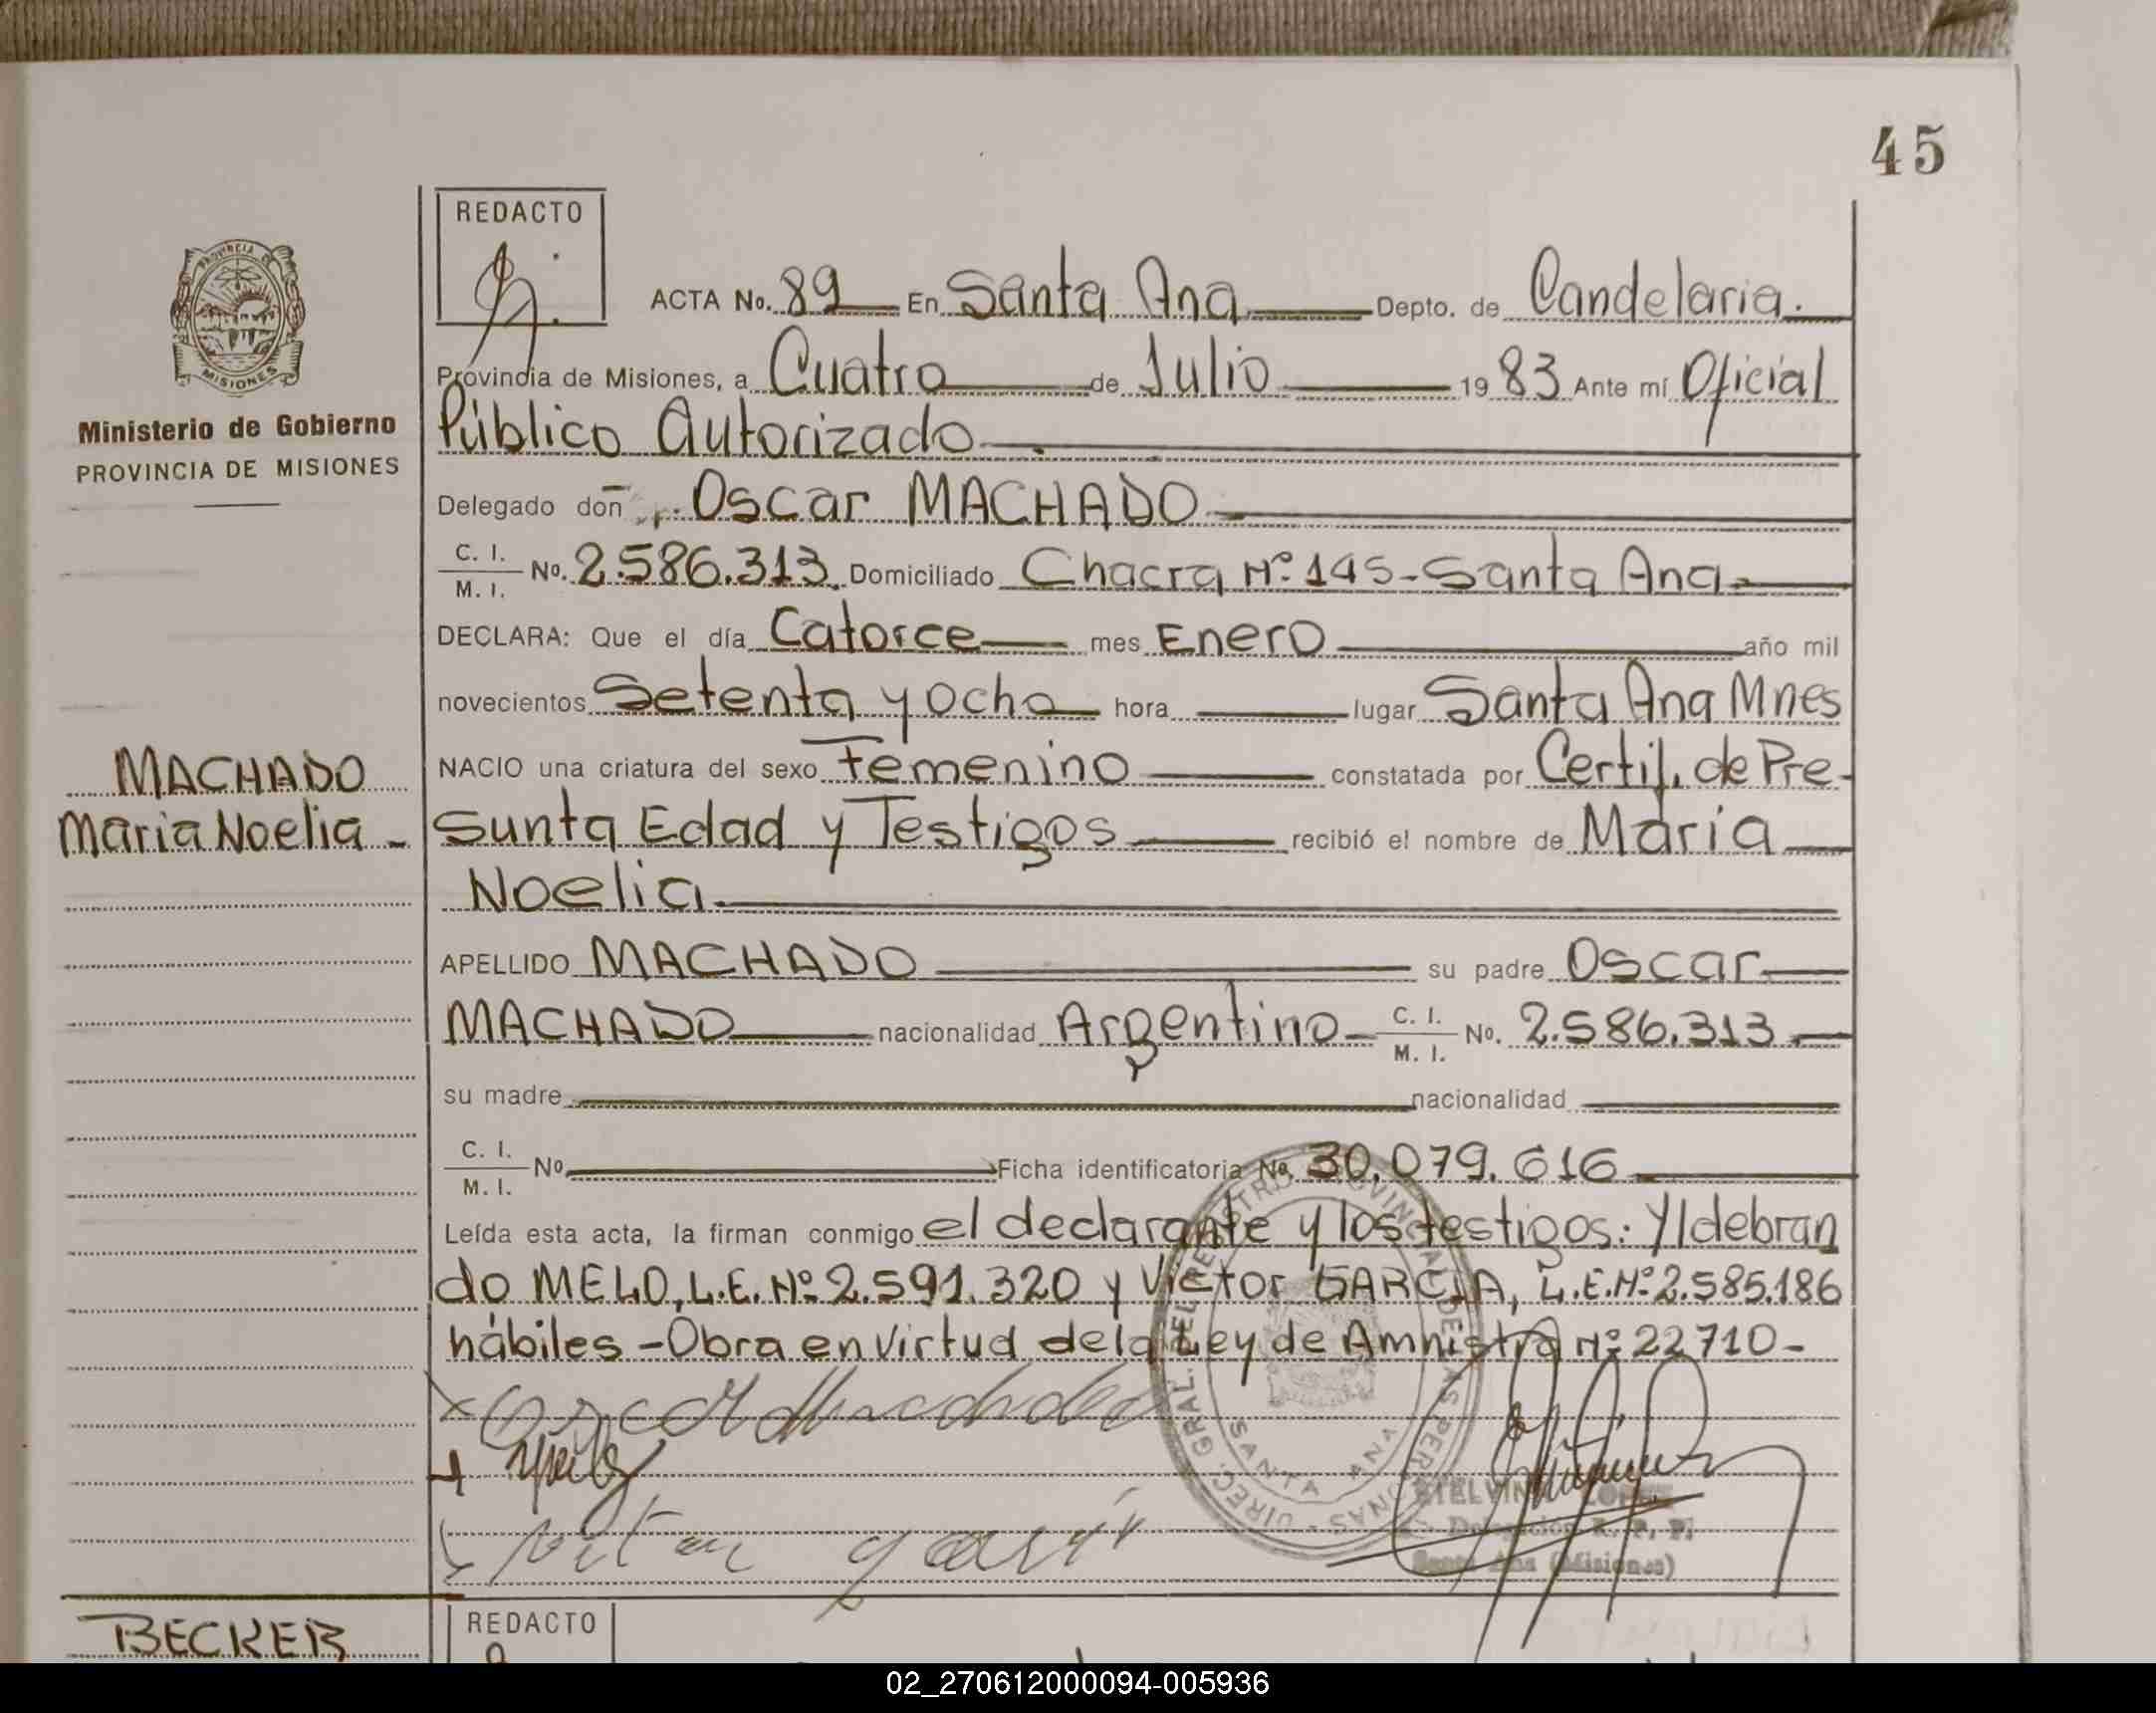 45
REDACTO
ACTA No. 89 En Santa Ana Depto. de Candelaria.
Provincia de Misiones, a Cuatro de Julio 1983 Ante mí Oficial
Público Autorizado
Delegado don Oscar MACHADO
C. I. M. I. No. 2.586.313. Domiciliado Chacra Nº 145 - Santa Ana
DECLARA: Que el día Catorce mes Enero año mil
novecientos Setenta y Ocho hora lugar Santa Ana Mnes
NACIO una criatura del sexo Femenino constatada por Certif. de Pre-
sunta Edad y Testigos recibió el nombre de María
Noelia
APELLIDO MACHADO su padre Oscar
MACHADO nacionalidad Argentino C. I. M. I. No. 2.586.313
su madre nacionalidad
C. I. M. I. No Ficha identificatoria No. 30.079.616
Leída esta acta, la firman conmigo el declarante y los testigos: Yldebran
do MELO, L.E. Nº 2.591.320 y Victor GARCIA, L.E. Nº 2.585.186
hábiles - Obra en virtud de la Ley de Amnistía Nº 22710-
PROVINCIA DE MISIONES
Ministerio de Gobierno
PROVINCIA DE MISIONES
MACHADO
María Noelia -
DIREC. GRAL. DEL REGISTRO PROVINCIAL DE LAS PERSONAS -
SANTA ANA
Delegación R. P. P.
Santa Ana (Misiones)
BECKER
REDACTO
02_270612000094-005936